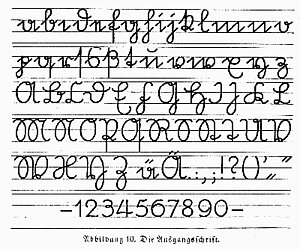 abcdefghijklmno
pqrſsßtuvwxyz
ABCDEFGHIJKL
MNOPQRSTUVW
WXYZäÄ.:,;!?()‚"
-1234567890-
Abbildung 10. Die Ausgangsschrift.